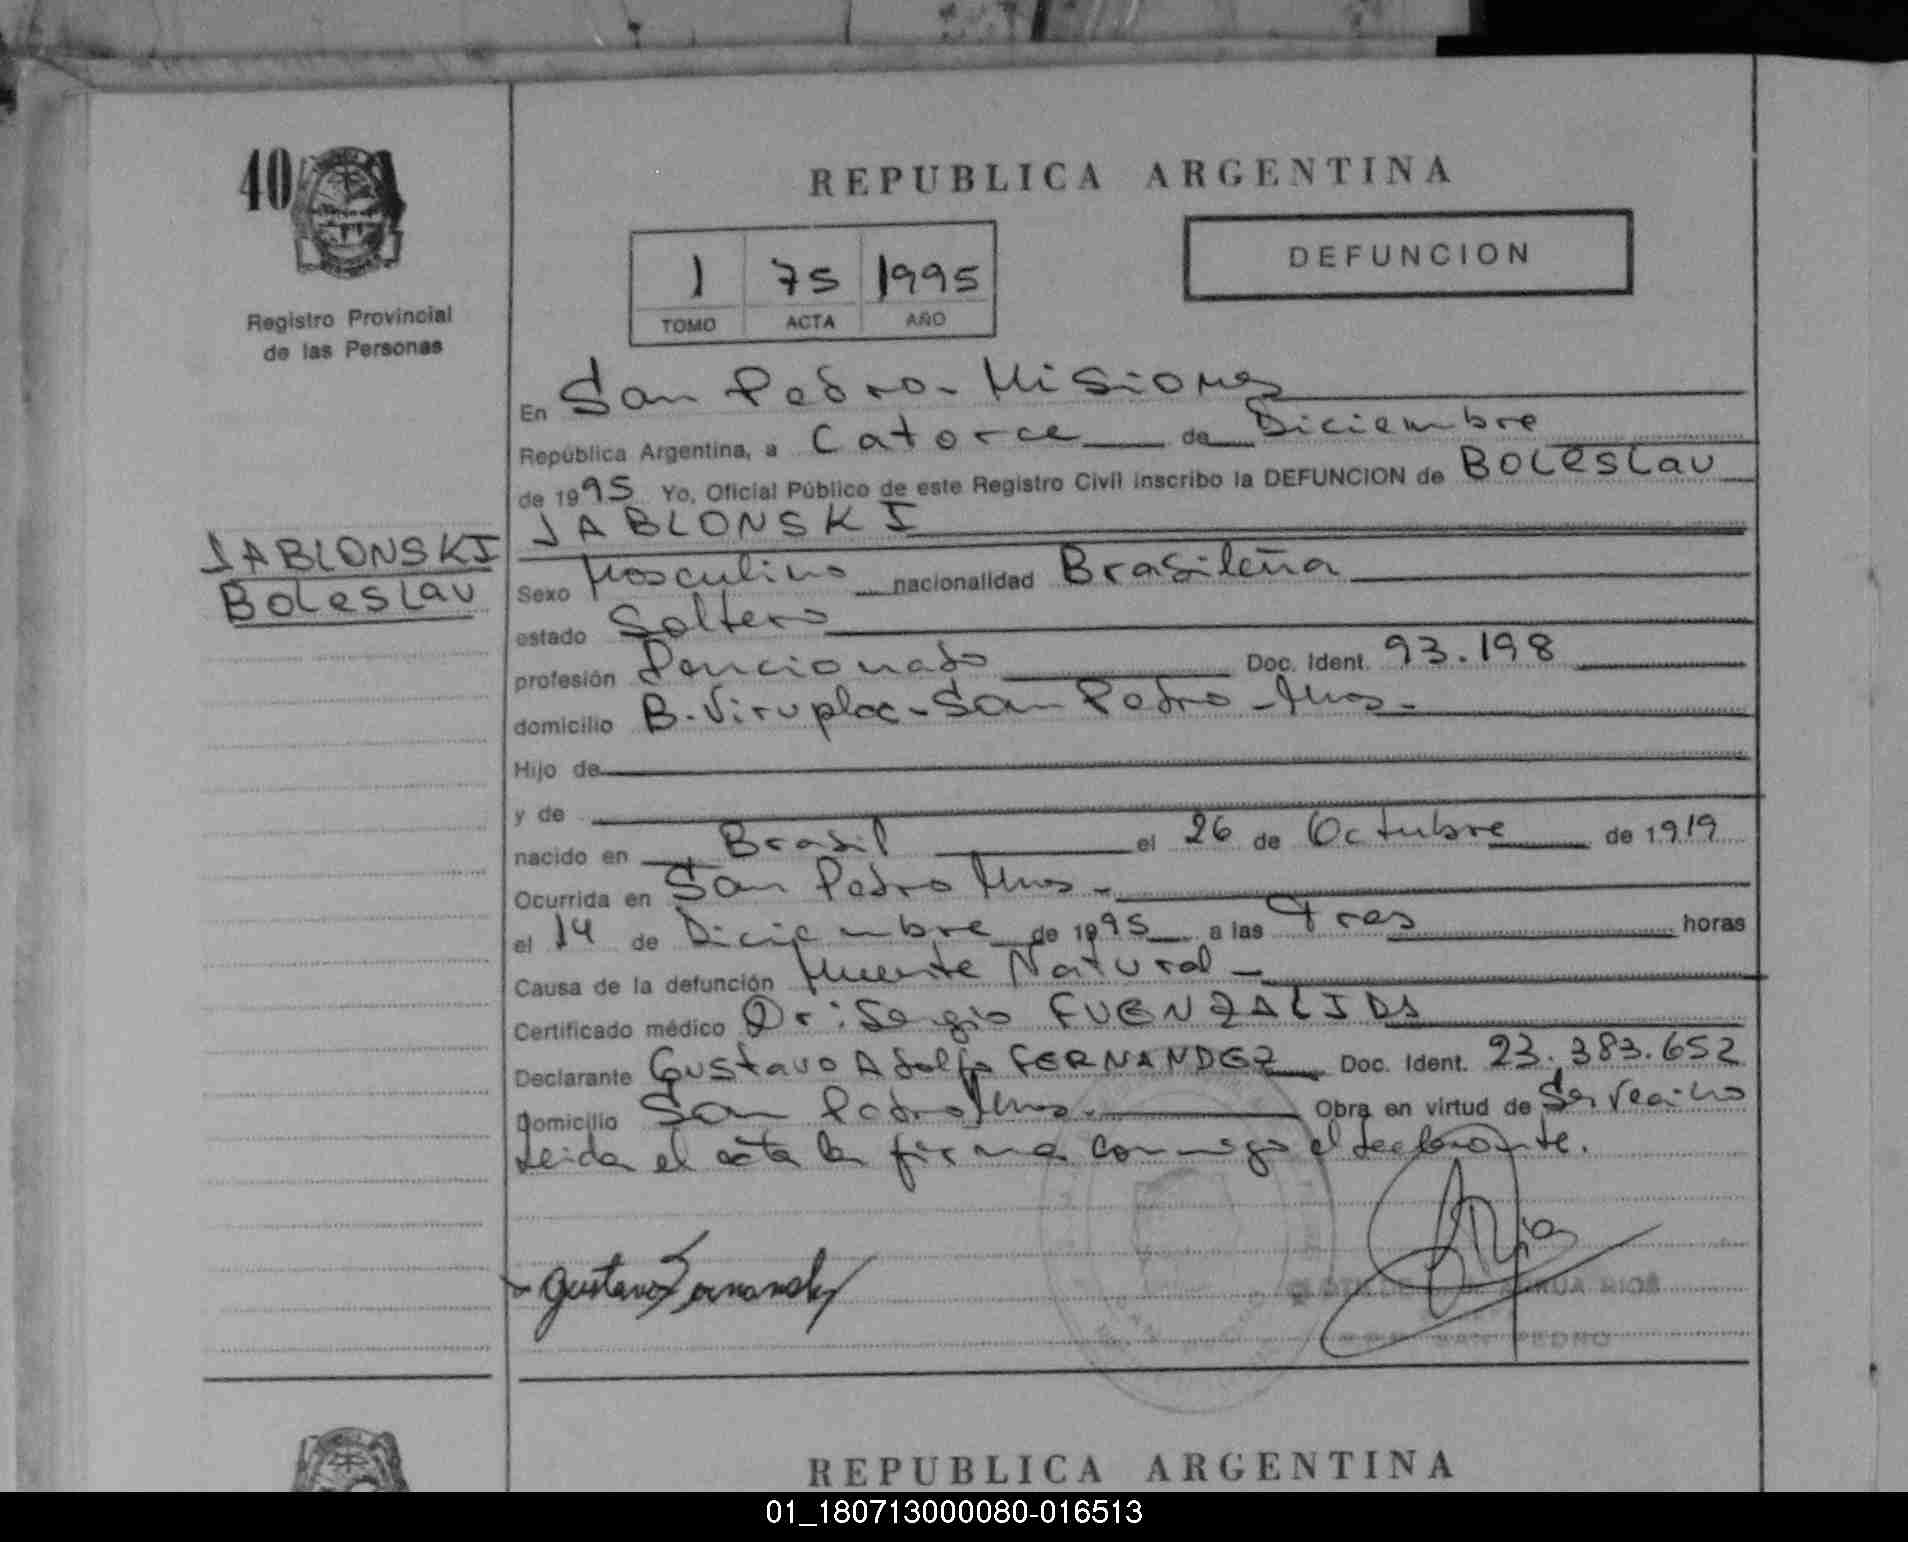 40
REPUBLICA ARGENTINA
DEFUNCION
1 75 1995
TOMO ACTA AÑO
Registro Provincial
de las Personas
En San Pedro - Misiones
República Argentina, a Catorce de Diciembre
de 1995 Yo, Oficial Público de este Registro Civil inscribo la DEFUNCION de Boleslau
JABLONSKI
JABLONSKI
Boleslau
Sexo Masculino nacionalidad Brasileña
estado Soltero
profesión Pencionado Doc. Ident. 93.198
domicilio B. - San Pedro - Mnes.
Hijo de
y de
nacido en Brasil el 26 de Octubre de 1919
Ocurrida en San Pedro Mnes -
el 14 de Diciembre de 1995 a las Tres horas
Causa de la defunción Muerte Natural -
Certificado médico Dr: Sergio FUENZALIDA
Declarante Gustavo Adolfo FERNANDEZ Doc. Ident. 23.383.652
Domicilio San Pedro Mnes. Obra en virtud de
Leida el acta la firma conmigo el declarante.
Gustavo Fernandez
RIOS
SAN PEDRO
REPUBLICA ARGENTINA
01_180713000080-016513